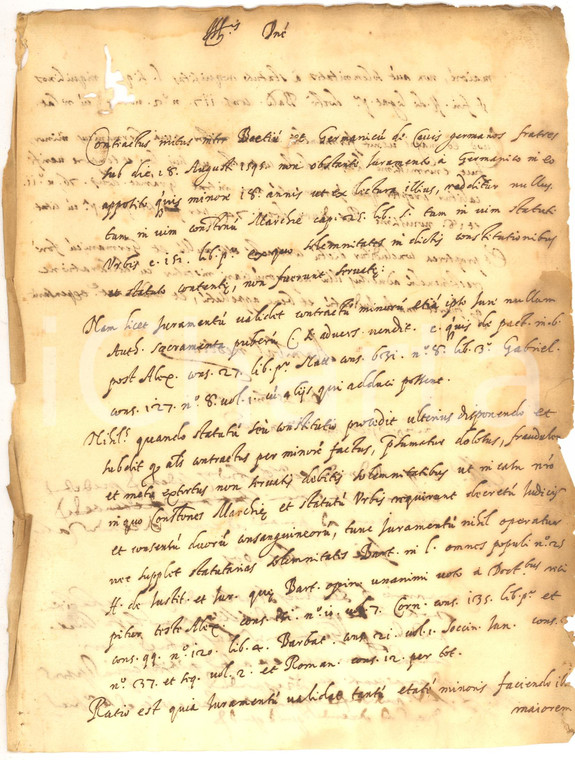 Ill.is Dne
Contractus initus inter Boetiū et Germanicū de Cavis germanos fratres
sub die 18. Augusti 1595. non obstante Juramento à Germanico in eo
apposito quis minor 18. annis ut ex lectura illius, redditur nullus
tam in vim constnū Marchie cap. 25. lib. 5. tam in vim statuti
Urbis c. 151. lib. p.º ex quo solemnitates in dictis constitutionibus
et statuto contente, non fuerunt servate:
Nam licet Juramentū validet contractū minorū etiā ipso Jure nullum
Auth. sacramenta puberū C. si advers. vendit. c. quis de pact. in 6.
post Alex. cons. 27. lib. p.º Natt. cons. 631. nº 8. lib. 3º Gabriel.
cons. 127. nº 8. vol. 1. cū alijs qui adduci possent.
Nihil. quando statutū seu constitutio procedit ulterius disponendo et
subdit q. als contractus per minorē factus, presumatur dolosus, fraudulos
et metu extortus non servatis debitis solemnitatibus ut in casu nro
in quo Constones Marchie et statutū Urbis requirant decretū Judicis
et consensū duorū consanguineorū, tunc Juramentū nihil operatur
nec supplet statutarias solemnitates Bart. in l. omnes populi nº 25
ff. de Iustit. et Iur. que Bart. opinio unanimi voto à Doct.bus reci
pitur test. Alex. cons. nº 10. vol. 7. Corn. cons. 135. lib. p.º et
cons. 99. nº 120. lib. 4. Barbat. cons. 21. vol. 1. Soccin. Iun. cons.
nº 37. et seq. vol. 2. et Roman. cons. 12. per tot.
Ratio est quia Juramentū validat tantū etatē minoris faciendo
maiorem